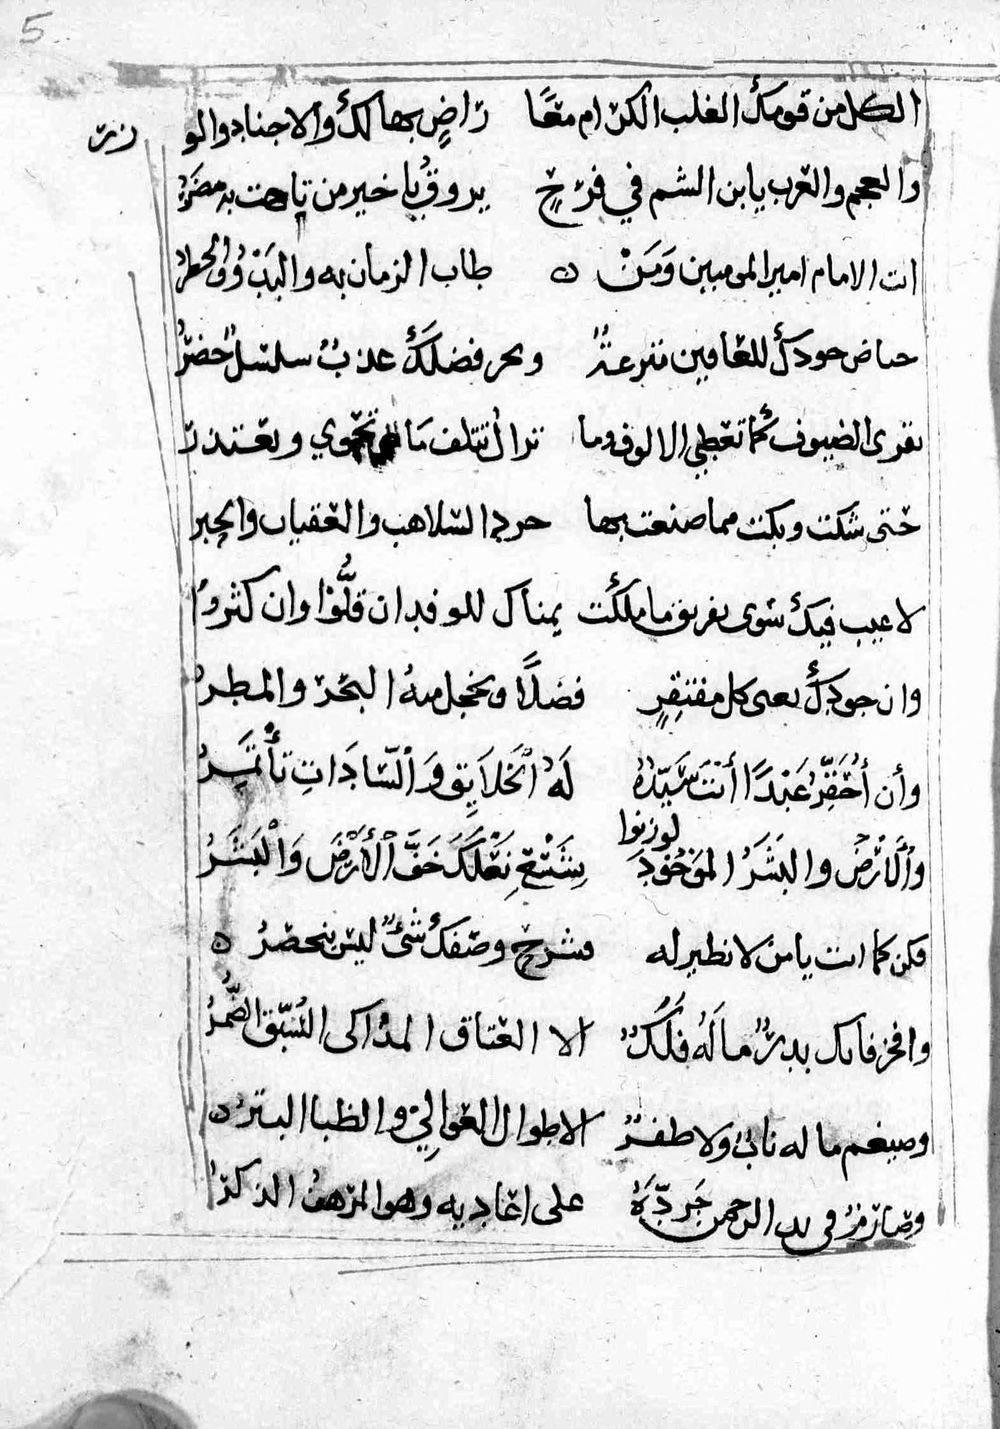 5
الكل من قومك الغلب الكرام معًا راضٍ بها لك والاجناد والو زر
والعجم والعرب يا ابن الشم في فرحٍ يروق يا خير من تاهت به مضرُ
انت الامام امير المومنين ومن طاب الزمان به والبدو والحضر
حياض جودك للعافين مترعةٌ وبحر فضلك عذبٌ سلسلٌ خضرُ
تقرى الضيوف كما تعطي الالوف وما تزال تتلف ما تحوي وتعتذر
حتى شكت وبكت مما صنعت بها جرد السلاهب والعقيان والحبر
لا عيب فيك سوى تفريق ما ملكت يمناك للوفد ان قلُّوا وان كثروا
وان جودك يغني كل مفتقرٍ فضلًا ويخجل منهُ البحر والمطرُ
وأن أحقر عَبْدًا أنت سَيّدهُ لَهُ الْخلايق وَالسّادَاتِ تأتَمِرُ
والارْضُ والبشرُ الموجود لو زنوا بشسْعِ نَعْلكَ خفَّ الأرْضَ وَالْبَشَرُ
فكن كما انت يا من لا نظير له فشرح وصفك شئٌ ليس ينحصرُ
وافخر فانك بدرٌ ما لهُ فلكٌ الا العتاق المذاكى السُّبّق الضُّمرُ
وضيغم ما له نابٌ ولا ظفرٌ الا طوال العوالي والظبا البترُ
وصارمٌ في يد الرحمن جَردّهُ على اعاديه وهو المرهفُ الذكرُ